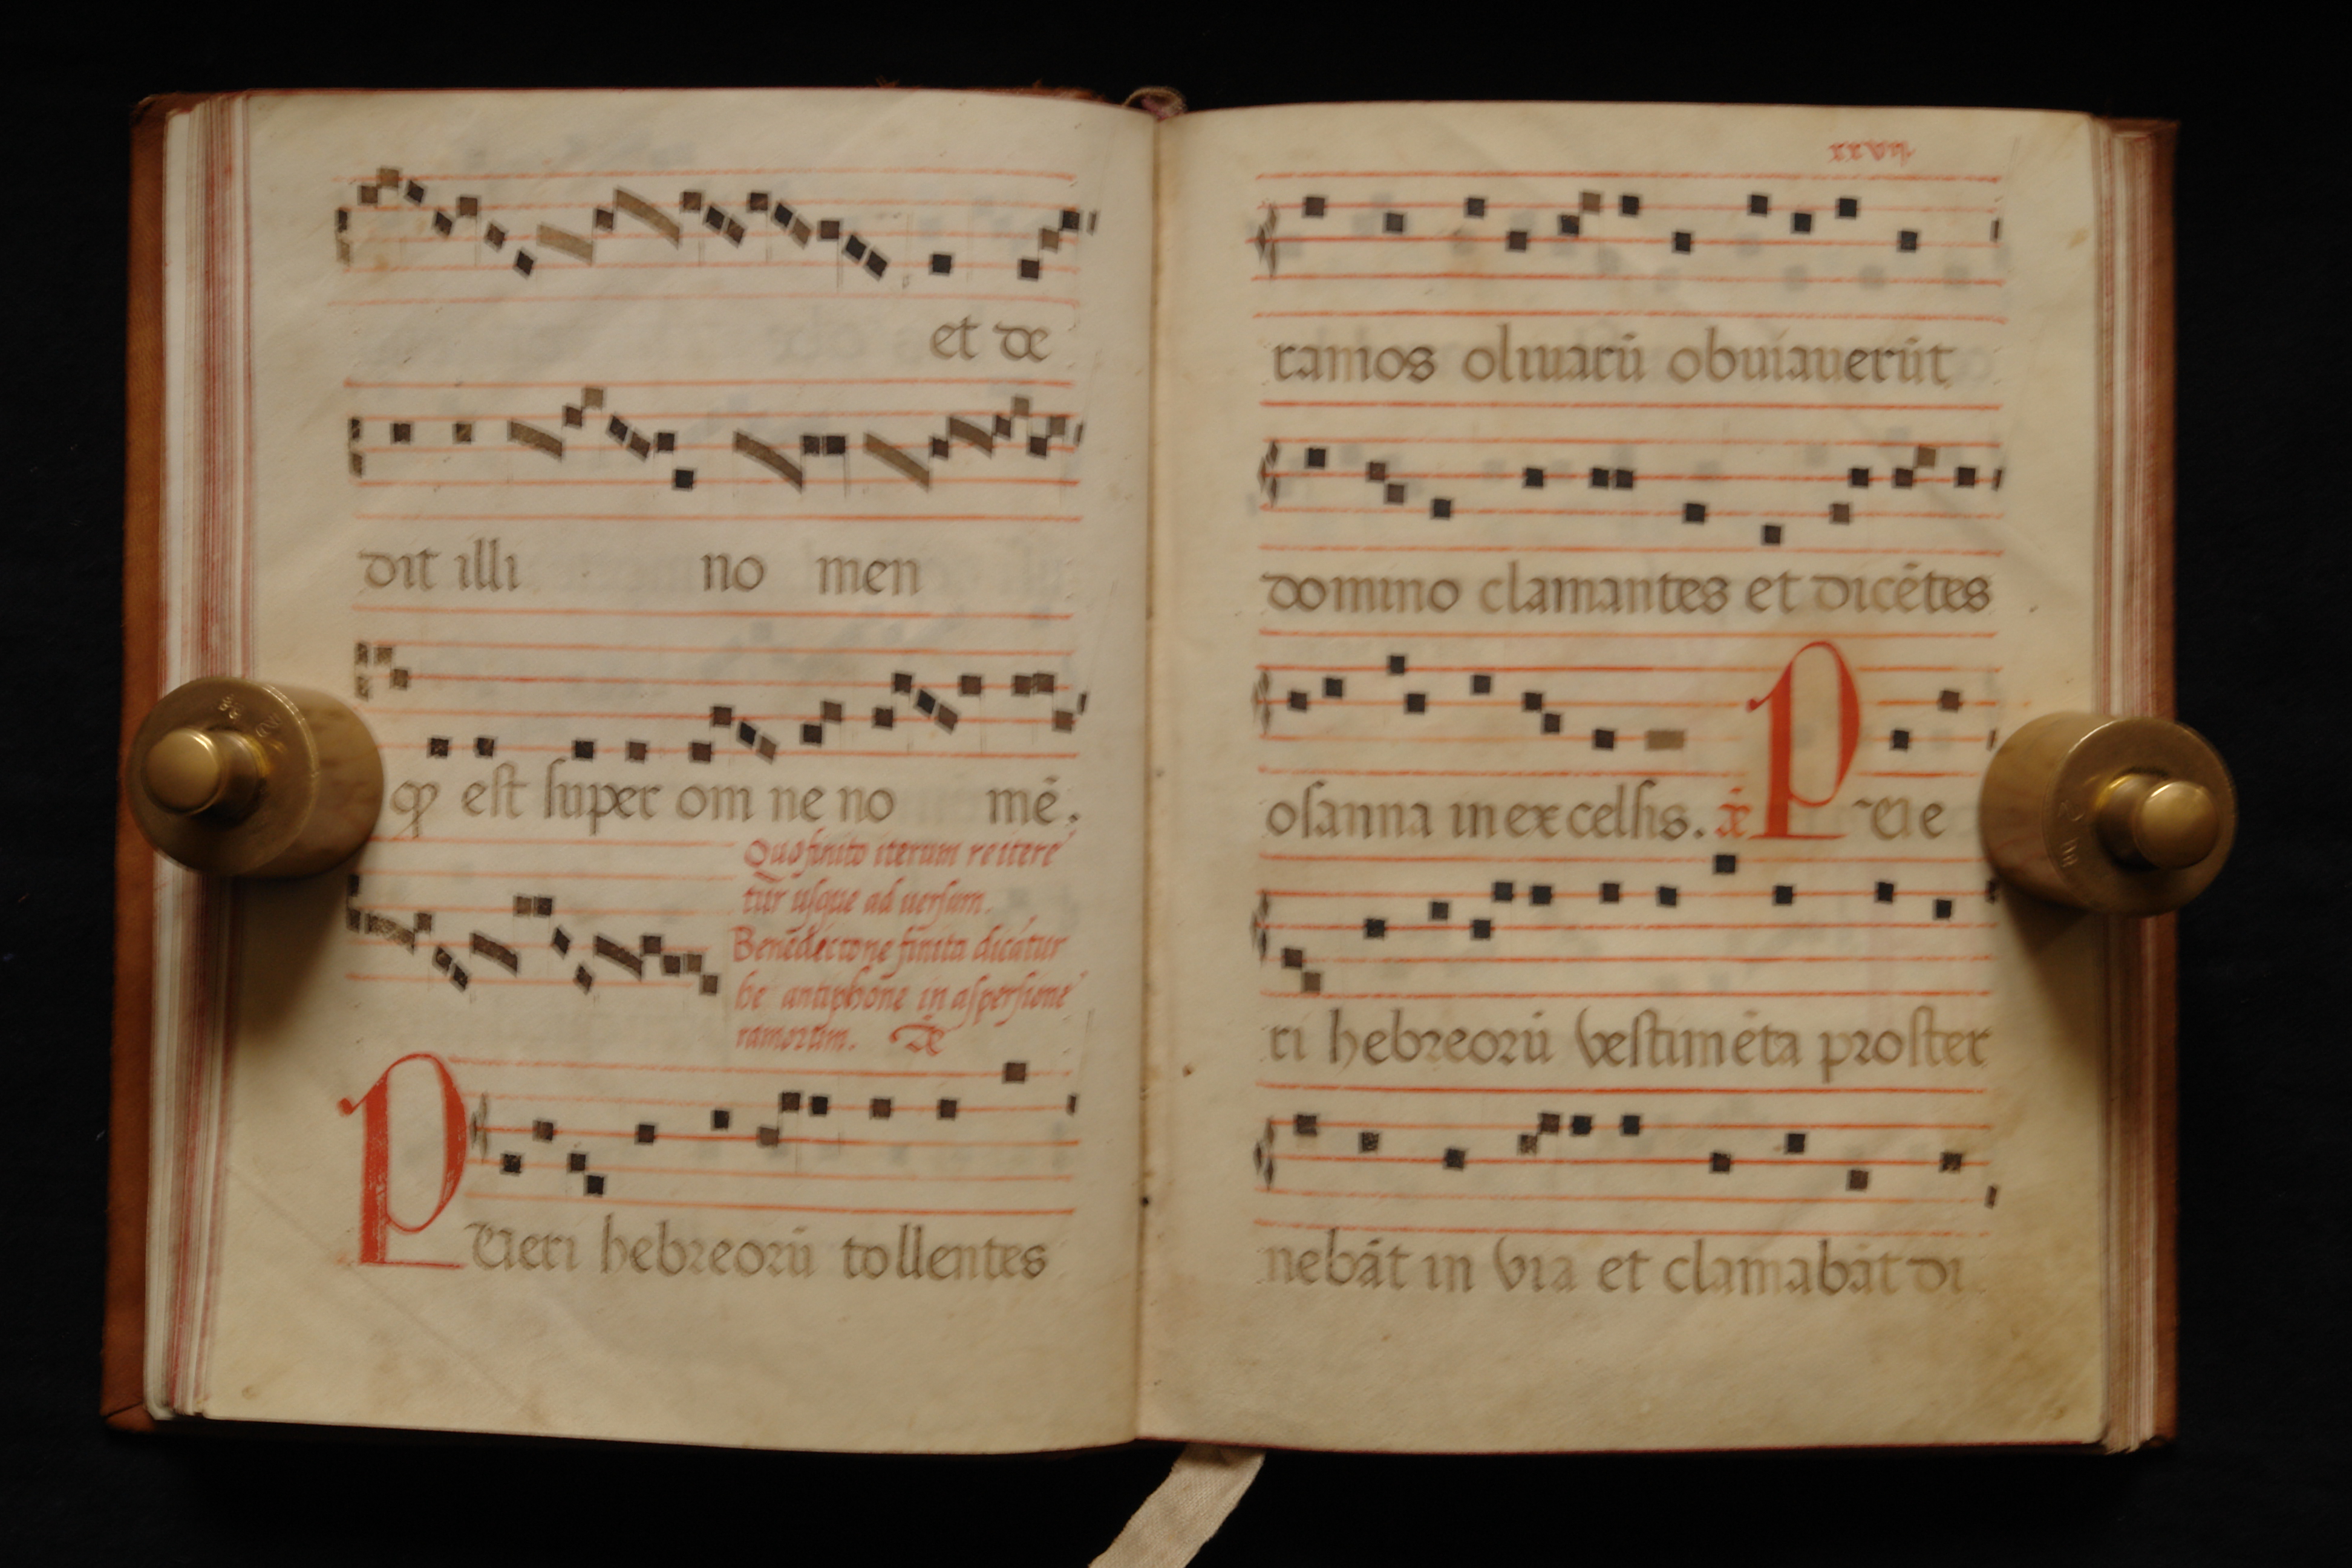 et de
dit illi no men
qƺ est super om ne no mē.
Quo finito iterum reitere
tur usque ad uersum.
Benedictone finita dicātur
he antiphone in aspersione
ramorum. Añ
PUeri hebreorū tollentes
xxvij
ramos oliuarū obuiauerūt
domino clamantes et dicētes
osanna in ex celsis. añ PUe
ri hebreorū vestimēta proster
nebāt in via et clamabāt di